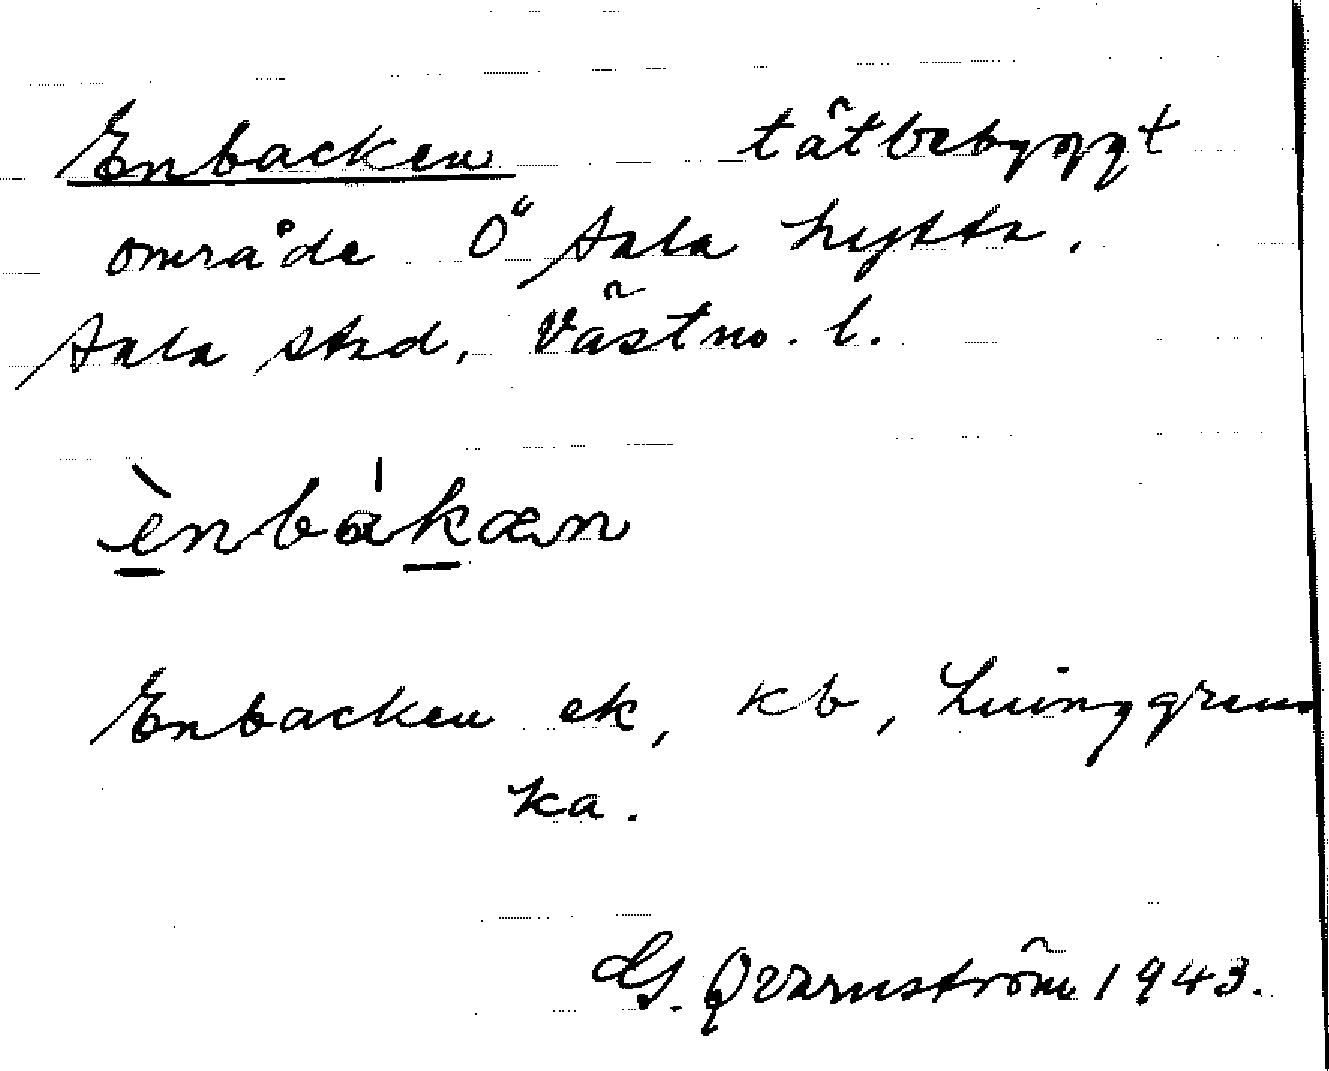 Enbacken tätbebyggt
område Ö Sala hytta.
Sala stad, Västm. l.
ènbákæn
Enbacken ek, kb,
ka.
G. Qvarnström 1943.